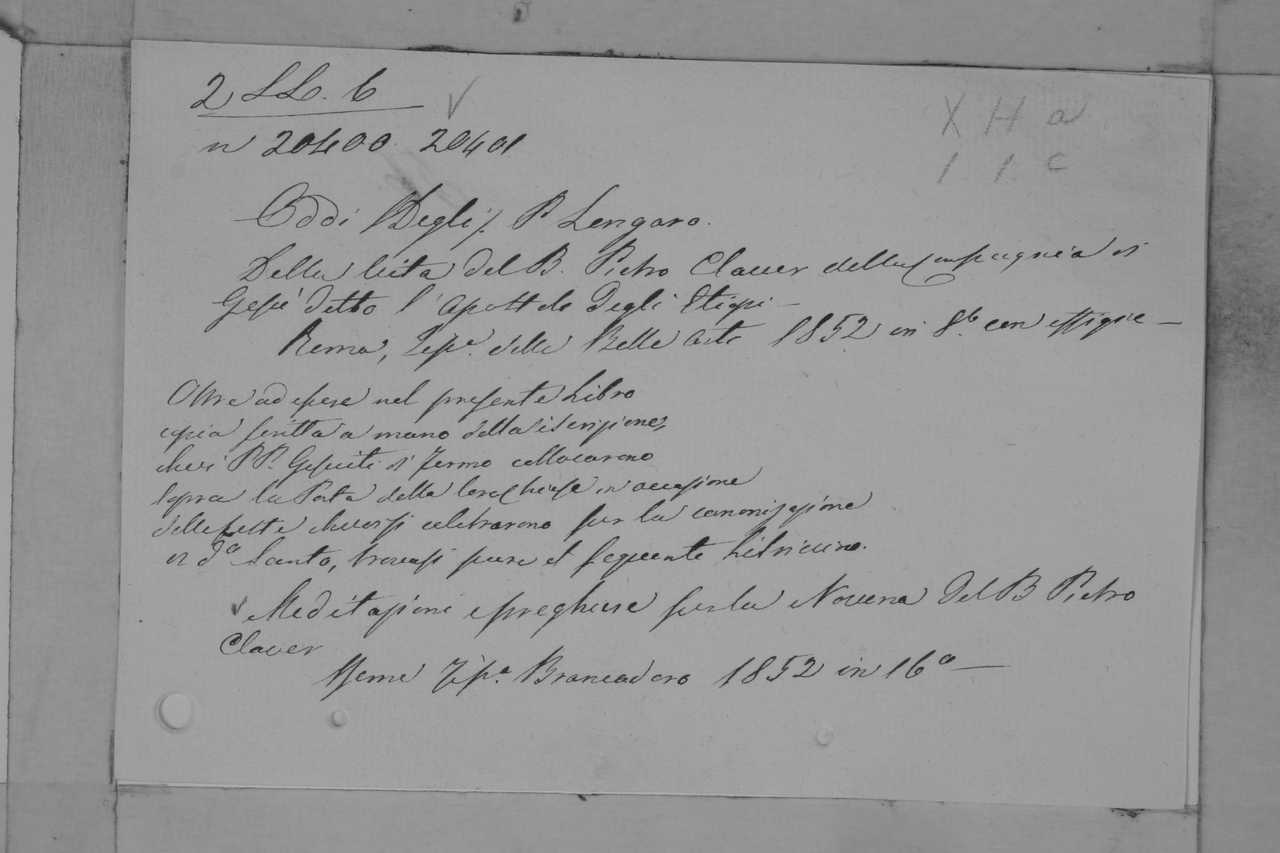 2 LL. 6
X H a
n 20400. 20401
1 1 c
Oddi (Degli) P. Longaro.
Della Vita del B. Pietro Claver della Compagnia di
Gesù detto l'Apostolo degli Etiopi —
Roma, Tipa. delle Belle Arti 1852 in 8o. con effigie —
Oltre ad essere nel presente Libro
copia scritta a mano della iscrizione,
che i PP. Gesuiti di Fermo collocarono
sopra la Porta della loro Chiesa in occasione
delle feste che ivi si celebrarono per la canonizazione
di do. Santo, trovasi pure il seguente Libricino.
Meditazioni e preghiere per la Novena del B Pietro
Claver
Tipa. Brancadoro 1852 in 16o —